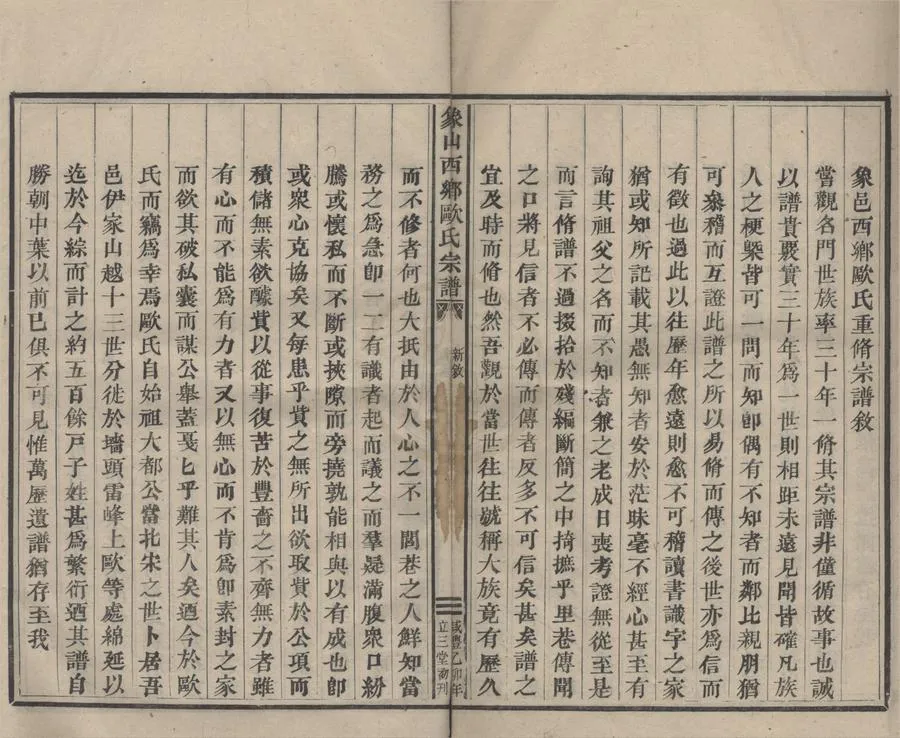 象邑西鄉歐氏重脩宗譜敘
嘗觀各門世族率三十年一脩其宗譜非僅循故事也誠
以譜貴覈實三十年爲一世則相距未遠見聞皆確凡族
人之梗槩皆可一問而知卽偶有不知者而鄰比親朋猶
可叅稽而互證此譜之所以易脩而傳之後世亦爲信而
有徵也過此以往歷年愈遠則愈不可稽讀書識字之家
猶或知所記載其愚無知者安於茫昧毫不經心甚至有
詢其祖父之名而不知者兼之老成日喪考證無從至是
而言脩譜不過掇拾於殘編斷簡之中掎摭乎里巷傳聞
之口將見信者不必傳而傳者反多不可信矣甚矣譜之
宜及時而脩也然吾觀於當世往往號稱大族竟有歷久
象山西鄉歐氏宗譜
新敘
咸豐乙卯年
立三堂刊
而不修者何也大抵由於人心之不一閭巷之人鮮知當
務之爲急卽一二有識者起而議之而羣疑滿腹衆口紛
騰或懷私而不斷或挾隙而旁撓孰能相與以有成也卽
或衆心克協矣又每患乎貲之無所出欲取貲於公項而
積儲無素欲醵貲以從事復苦於豐嗇之不齊無力者雖
有心而不能爲有力者又以無心而不肯爲卽素封之家
而欲其破私囊而謀公舉蓋戛乎難其人矣迺今於歐
氏而竊爲幸焉歐氏自始祖大都公當北宋之世卜居吾
邑伊家山越十三世分徙於墻頭雷峰上歐等處綿延以
迄於今綜而計之約五百餘戸子姓甚爲繁衍迺其譜自
勝朝中葉以前已俱不可見惟萬歷遺譜猶存至我